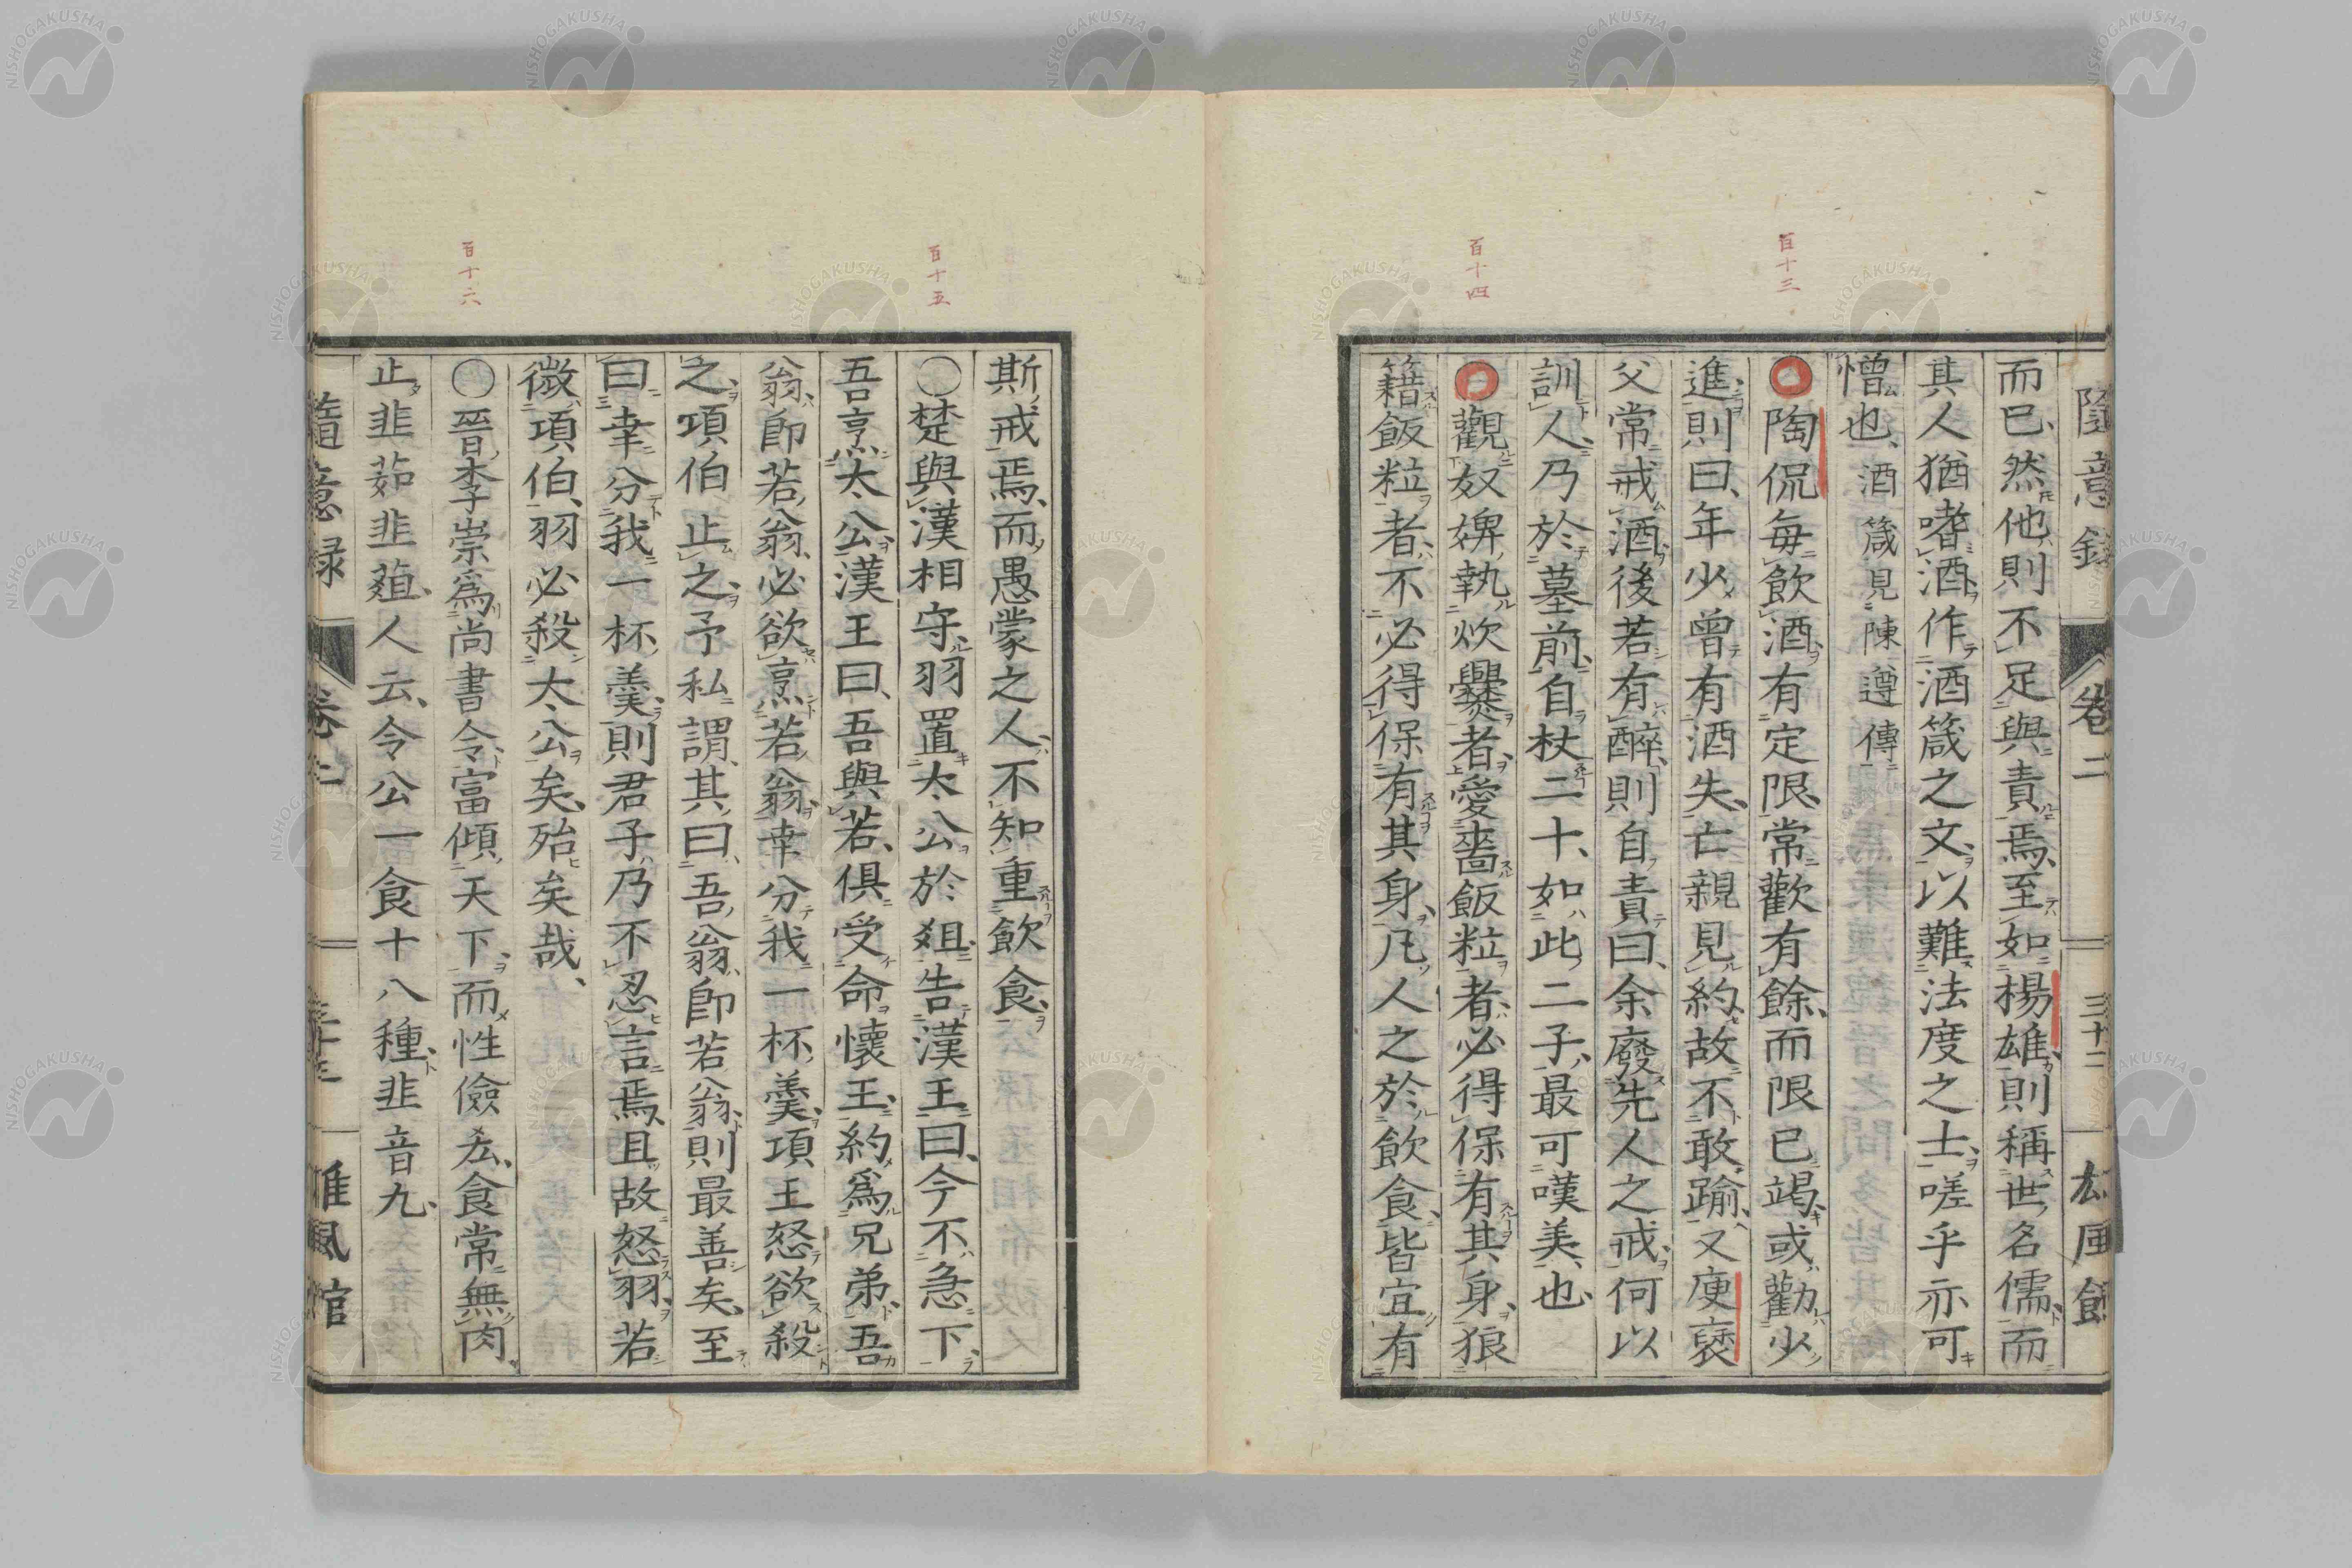 隨意錄 卷二 三十二
而已、然他則不足與責焉、至如楊雄、則稱世名儒、而
其人猶嗜酒、作酒箴之文、以難法度之士、嗟乎亦可
憎也、酒箴見陳遵傳
百十三
○陶侃每飲酒有定限、常歡有餘、而限已竭、或勸少
進、則曰、年少曾有酒失、亡親見約、故不敢踰、又庾袞
父常戒酒、後若有醉、則自責曰、余廢先人之戒、何以
訓人、乃於墓前、自杖二十、如此二子、最可嘆美也、
百十四
○觀奴婢執炊爨者、愛嗇飯粒者、必得保有其身、狼
籍飯粒者、不必得保有其身、凡人之於飲食、皆宜有
斯戒焉、而愚蒙之人、不知重飲食、
百十五
○楚與漢相守、羽置太公於俎、告漢王曰、今不急下
吾烹太公、漢王曰、吾與若、俱受命懷王、約爲兄弟、吾
翁、卽若翁、必欲烹若翁、幸分我一杯羹、項王怒欲殺
之、項伯止之、予私謂、其曰吾翁卽若翁、則最善矣、至
曰幸分我一杯羹、則君子乃不忍言焉、且故怒羽、若
微項伯、羽必殺太公矣、殆矣哉、
百十六
○晉李崇爲尚書令、富傾天下、而性儉𠫤、食常無肉、
止韭茹韭葅、人云、令公一食十八種、韭音九、
隨意錄 卷二 雄風館